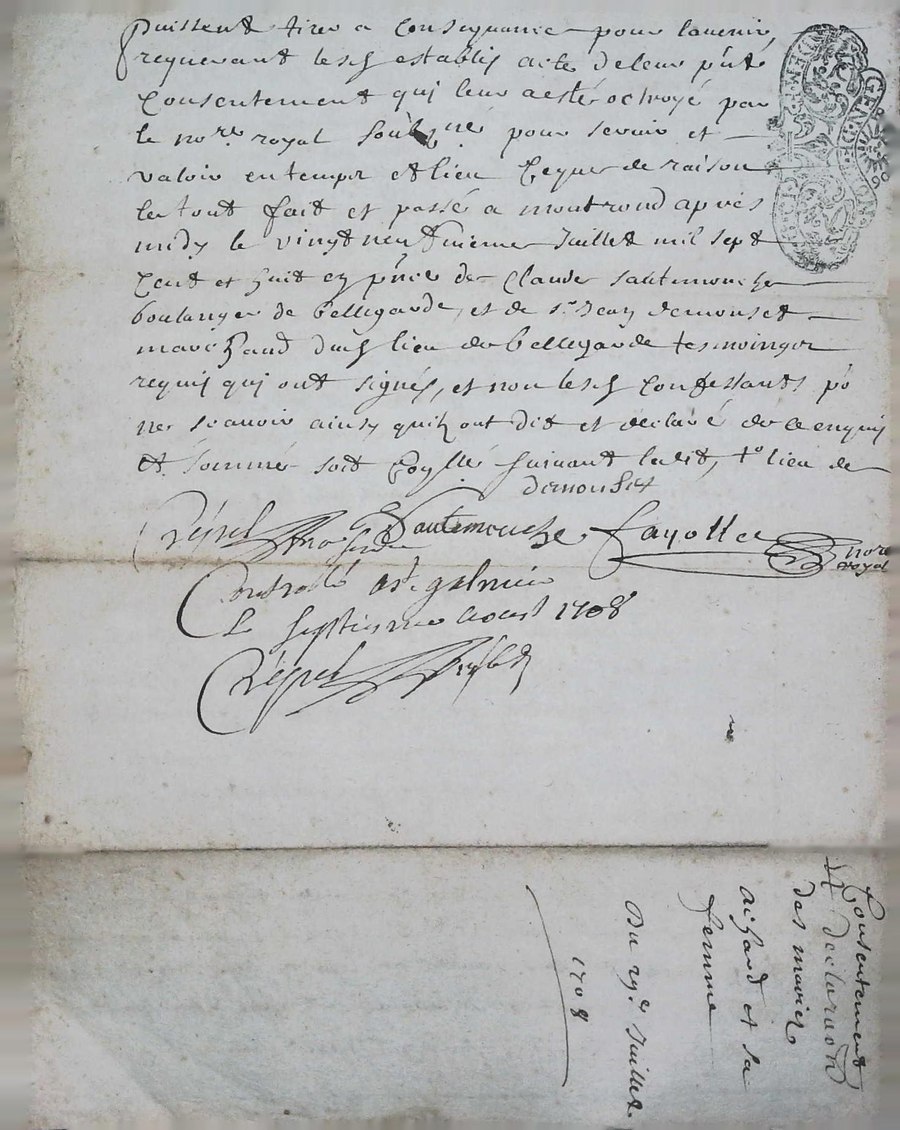 puissent tirer a Consequance pour lavenir,
requerant lesd establis acte de leur pnt
Consentement qui leur a esté octroyé par
le nore royal soubzné pour servir et
valoir en temps et lieu Ceque de raison
le tout fait et passé a montrond apres
midy le vingt neufvieme Juillet mil sept
Cent et huit en pnce de Claude sautemouche
boulanger de bellegarde, et de sr Jean demouset
marchand dud lieu de bellegarde tesmoingtz
requis qui ont signés, et non lesd Confessants po
ne scavoir ainsy quilz ont dit et declaré de ce enquis
et sommés soit suivant ledit, lieu de
demouset
Sautemouche fayolle nore royal
Controllé a st galmier
Le septieme aoust 1708
Consentement
et declaraon
des mariez
achard et sa
femme
Du 29e Juillet
1708
GEN.DE